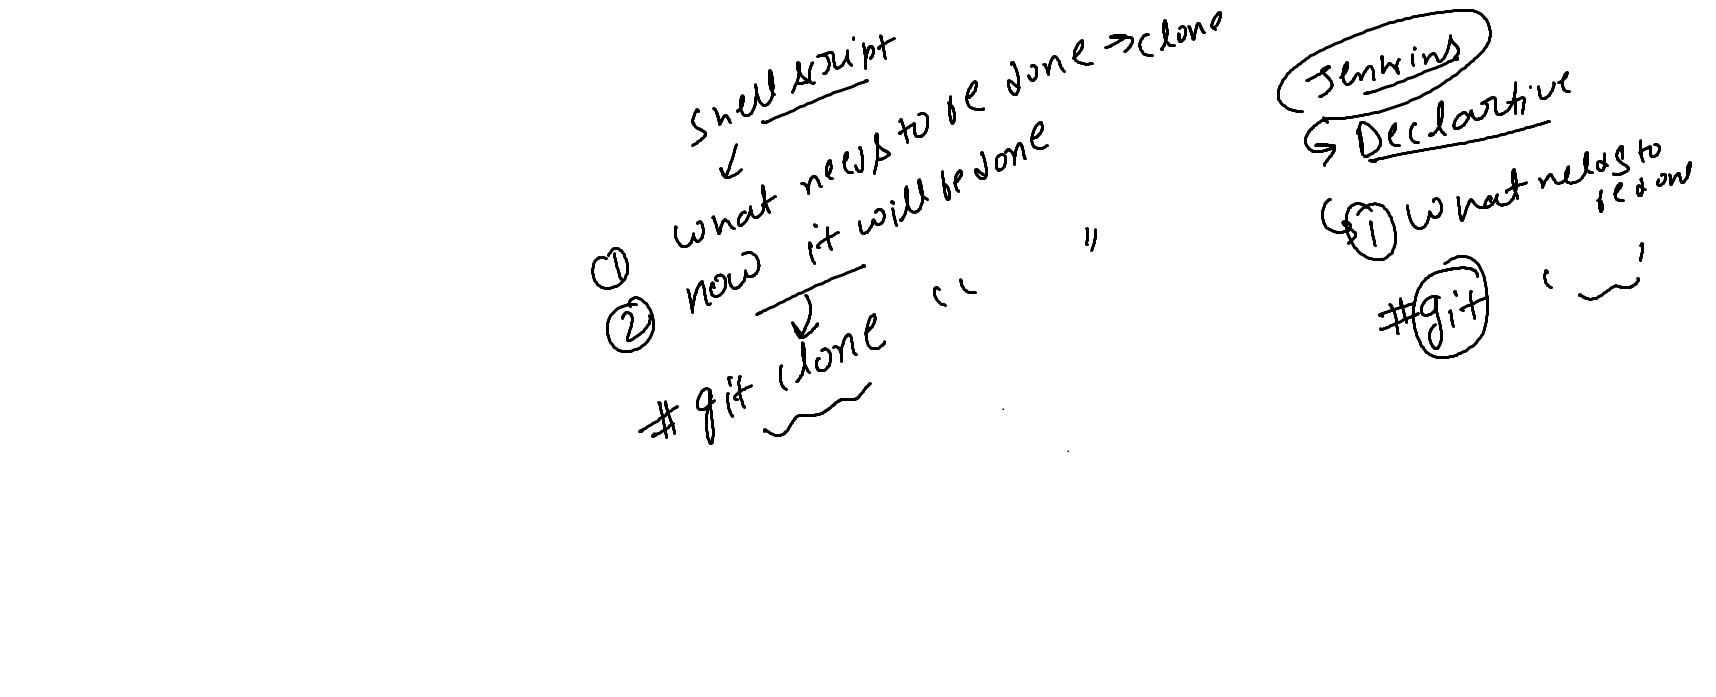 Shell script
① what needs to be done → clone
② how it will be done
# git clone " "
Jenkins
Declartive
① what needs to be done
# git ' '